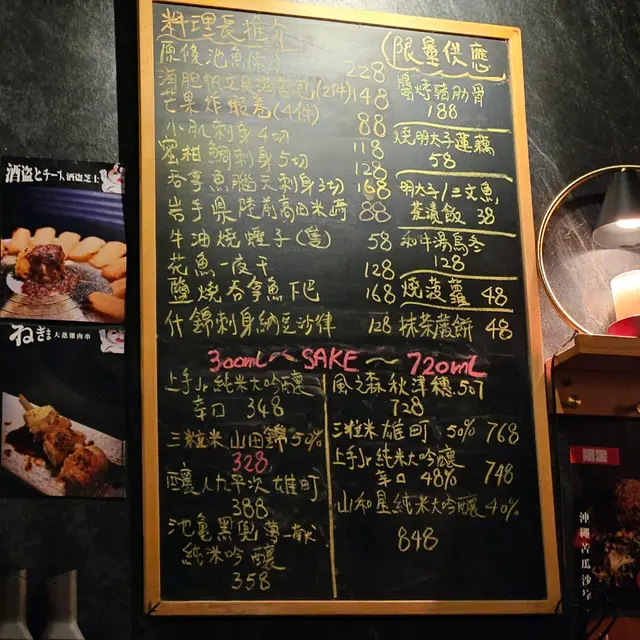 料理長推介
池魚
228
(2件) 148
芒果炸蝦卷(4件)
88
小肌刺身4切
118
蜜柑鰤刺身5切
128
吞拿魚腦天刺身3切 168
岩手県陸前高田米崎 88
牛油燒蟶子(隻) 58
花魚一夜干
128
鹽燒吞拿魚下巴 168
什錦刺身納豆沙律 128
(限量供應)
醬烤豬肋骨
188
燒明太子蓮藕
58
明太子/三文魚,
茶漬飯 38
和牛湯烏冬
128
燒菠蘿 48
抹茶蕨餅 48
300mL ~ SAKE ~ 720mL
上手Jr純米大吟釀
辛口 348
三粒米 山田錦 50%
328
釀人九平次 雄町
388
池亀黑兜
純米吟釀
358
風之森 秋津穗 507
728
三粒米 雄町 50% 768
上手Jr純米大吟釀
辛口 48% 748
山和星純米大吟釀 40%
848
酒盗とチーズ 酒盗芝士
ねぎま 大蔥雞肉串
沖繩苦瓜沙律